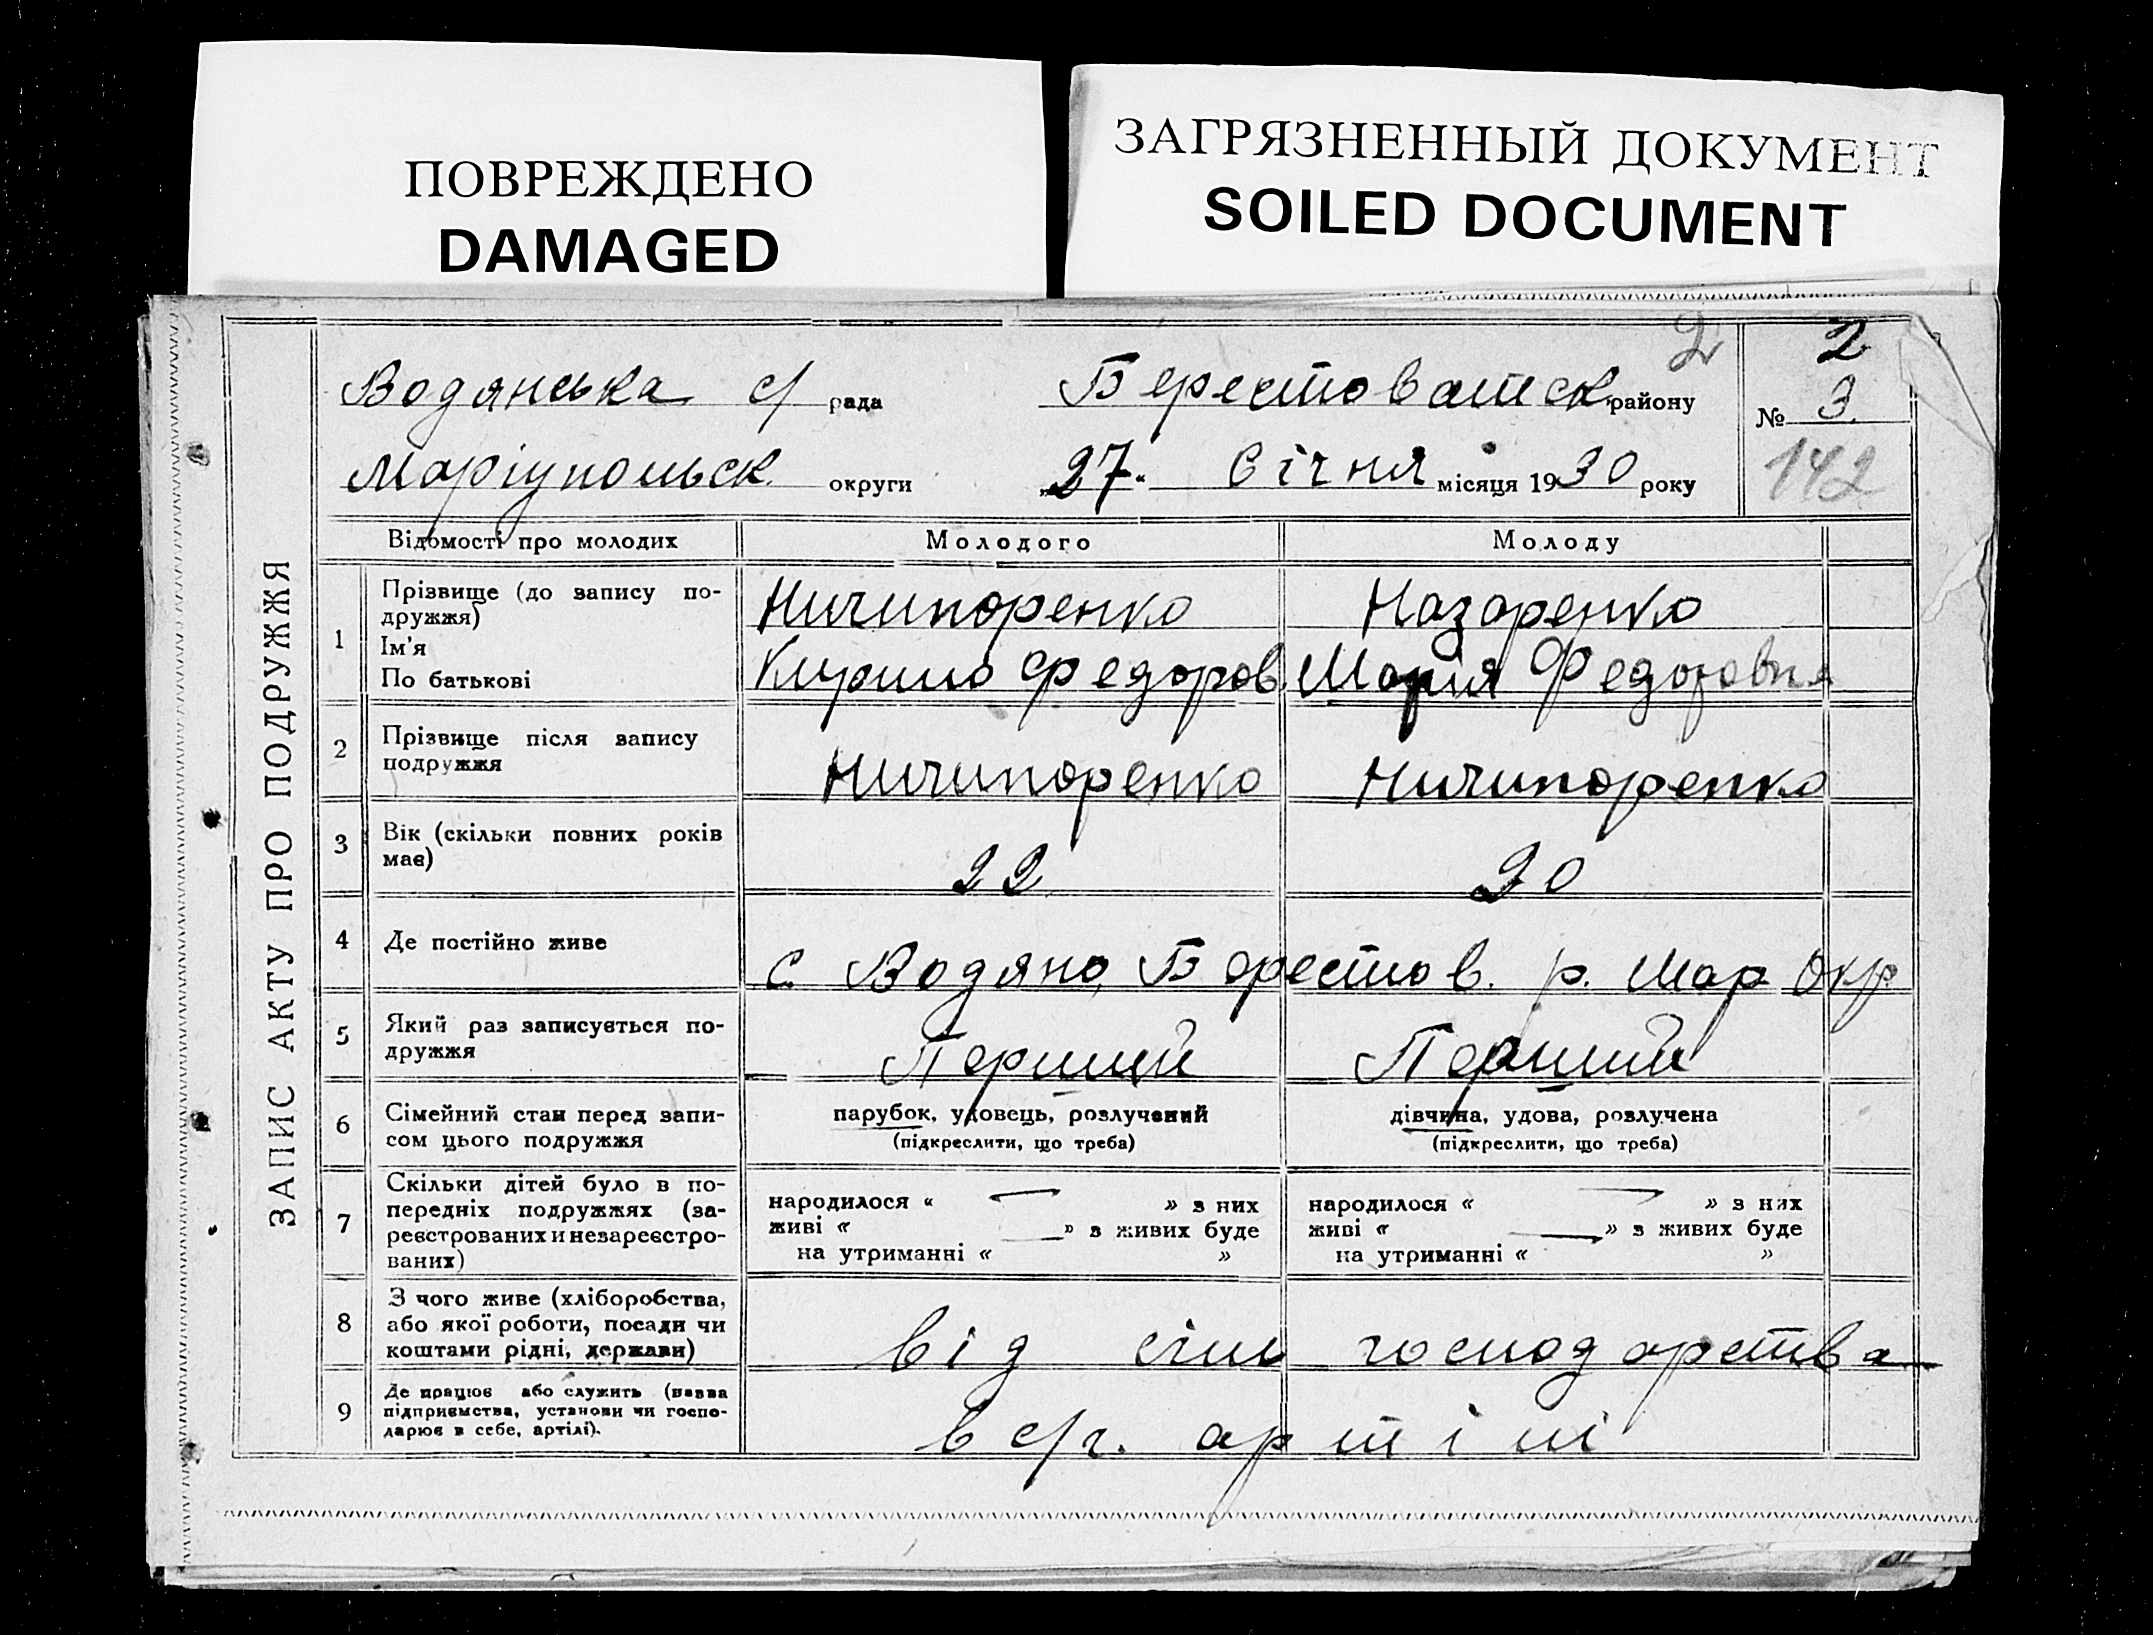 ПОВРЕЖДЕНО
DAMAGED
ЗАГРЯЗНЕННЫЙ ДОКУМЕНТ
SOILED DOCUMENT
ЗАПИС АКТУ ПРО ПОДРУЖЖЯ
2 2
Водянська с/ рада Берестоватск. району № 3.
Маріупольск. округи „27" Січня місяця 1930 року 142
Відомості про молодих Молодого Молоду
1 Прізвище (до запису по-
дружжя) Ничипоренко Назаренко
Ім'я
По батькові Кирило Федоров. Марія Федоровна
2 Прізвище після запису
подружжя Ничипоренко Ничипоренко
3 Вік (скільки повних років
має) 22 20
4 Де постійно живе с. Водяно, Берестов. р. Мар Окр
5 Який раз записується по-
дружжя Перший Перший
6 Сімейний стан перед запи-
сом цього подружжя
парубок, удовець, розлучений
(підкреслити, що треба)
дівчина, удова, розлучена
(підкреслити, що треба)
7 Скільки дітей було в по-
передніх подружжях (за-
реєстрованих и незареєстро-
ваних)
народилося « — » з них
живі « — » з живих буде
на утриманні « »
народилося « — » з них
живі « — » з живих буде
на утриманні « »
8 З чого живе (хліборобства,
або якої роботи, посади чи
коштами рідні, держави)
від сіль господарства
9 Де працює або служить (назва
підприємства, установи чи госпо-
дарює в себе, артілі).
в с/г. артілі